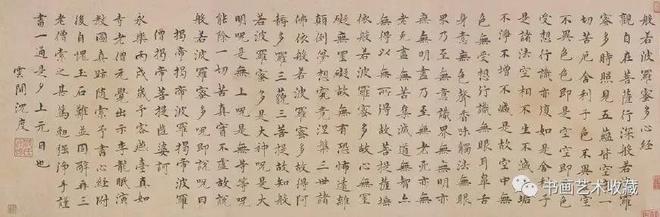 般若波羅蜜多心經
觀自在菩薩行深般若波羅
蜜多時照見五蘊皆空度一
切苦厄舍利子色不異空空
不異色色即是空空即是色
受想行識亦復如是舍利子
是諸法空相不生不滅不垢
不淨不增不減是故空中無
色無受想行識無眼耳鼻舌
身意無色聲香味觸法無眼
界乃至無意識界無無明亦
無無明盡乃至無老死亦無
老死盡無苦集滅道無智亦
無得以無所得故菩提薩埵
依般若波羅蜜多故心無罣
礙無罣礙故無有恐怖遠離
顛倒夢想究竟涅槃三世諸
佛依般若波羅蜜多故得阿
耨多羅三藐三菩提故知般
若波羅蜜多呪是大神呪是大
明呪是無上呪是無等等呪
能除一切苦真實不虛故說
般若波羅蜜多呪即說呪曰
揭帝揭帝波羅揭帝波羅
僧揭帝菩提薩婆訶
永樂丙戌歲予客燕臺真如
寺老僧元覺出示李龍眠演
教圖真跡隨索予書心經附
後自愧玉石難並固辭再三
老僧索之甚篤勉強沐手謹
書一通是夕上元日也
雲間沈度
书画艺术收藏